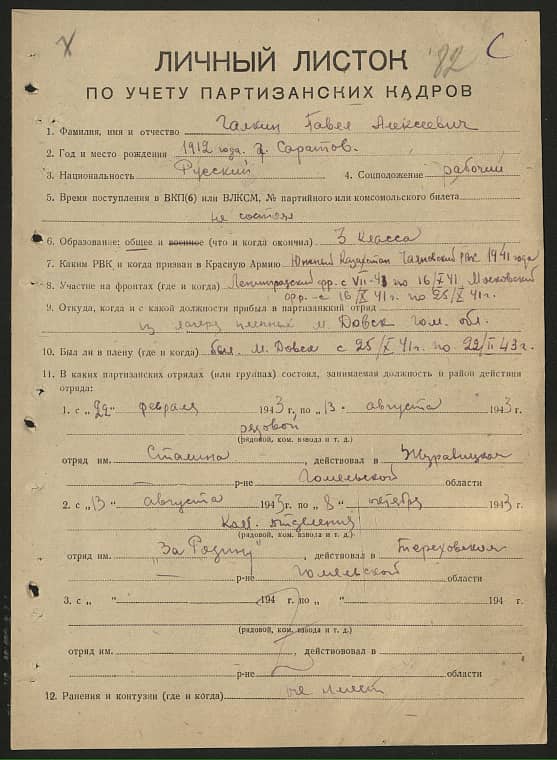 82 С
ЛИЧНЫЙ ЛИСТОК
ПО УЧЕТУ ПАРТИЗАНСКИХ КАДРОВ
1. Фамилия, имя и отчество Галкин Павел Алексеевич
2. Год и место рождения 1912 года. г. Саратов.
3. Национальность Русский 4. Соцположение рабочий
5. Время поступления в ВКП(б) или ВЛКСМ, № партийного или комсомольского билета
не состоял
6. Образование: общее и военное (что и когда окончил) 3 класса
7. Каким РВК и когда призван в Красную Армию Южный Казахстан РВК 1941 года
8. Участие на фронтах (где и когда) Ленинградский фр. с VII-41 по 16/X 41 Московский
фр. с 16/X 41г. по 25/X 41г.
9. Откуда, когда и с какой должности прибыл в партизанский отряд
из лагеря пленных м. Довск гом. обл.
10. Был ли в плену (где и когда) был. м. Довск с 25/X 41г. по 22/II 43г.
11. В каких партизанских отрядах (или группах) состоял, занимаемая должность и район действия
отряда:
1. с „22“ февраля 1943 г. по „13“ августа 1943 г.
рядовой
(рядовой, ком. взвода и т. д.)
отряд им. Сталина, действовал в Журавицком
р-не Гомельской области
2. с „13“ августа 1943 г. по „8“ октября 1943 г.
Ком. отделения
(рядовой, ком. взвола и т. д.)
отряд им. "За Родину", действовал в Тереховском
р-не Гомельской области
3. с „ “ 194 г. по „ “ 194 г.
(рядовой, ком. взвода и т. д.)
отряд им. , действововал в
р-не области
12. Ранения и контузии (где и когда) не имеет